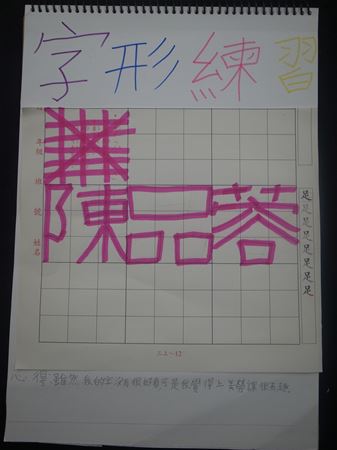 字形練習
年級 班 號 姓名
陳品蓉
足
足
足
足
足
足
足
足
三上~12
心得:雖然我的字沒有很好看可是我覺得上美勞課很有趣